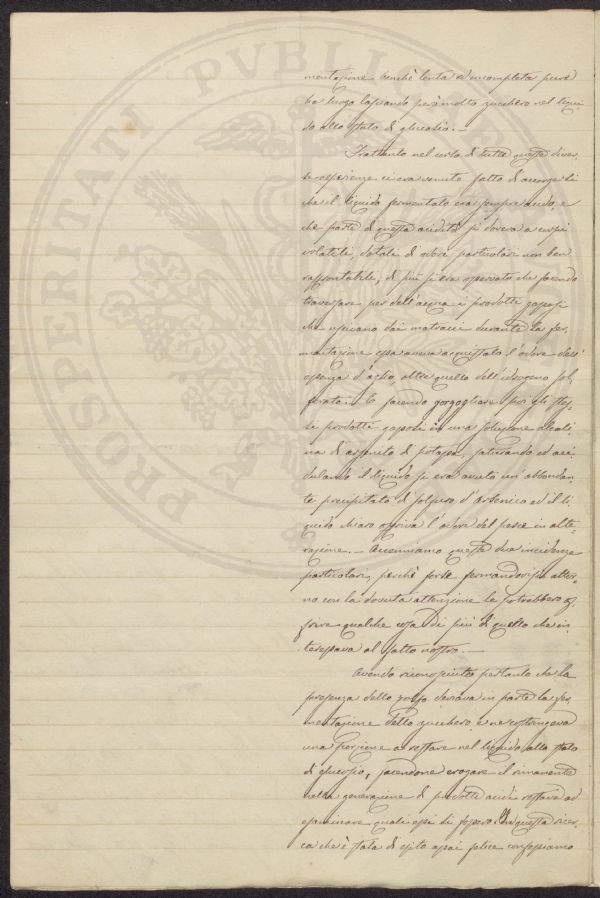 PROSPERITATI PVBLICAE
mentazione benchè lenta ed incompleta pure
ha luogo lasciando però molto zucchero nel liqui-
do allo stato di glucosio. —
Frattanto nel corso di tutte queste diver-
se esperienze ci era venuto fatto di accorgerci
che il liquido fermentato era sempre acido, e
che parte di questa acidità si doveva a corpi
volatili, dotati di odore particolare non ben
rassontabile, di più si era osservato che facendo
traversare per dell'acqua i prodotti gassosi
che uscivano dai matracci durante la fer-
mentazione essa aveva acquistato l'odore dell'
essenza d'aglio, oltre quello dell'idrogeno sol-
forato. E facendo gorgogliare poi gli stes-
si prodotti gassosi in una soluzione alcali-
na di arsenito di potassa, saturando ed aci-
dulando il liquido si era avuto un'abbondan-
te precipitato di solfuro d'arsenico ed il li-
quido chiaro offriva l'odore del pesce in alte-
razione. — Accenniamo queste due incidenze
particolari, perchè forse fermandovisi attor-
no con la dovuta attenzione le potrebbero of-
frire qualche cosa di più di quello che in-
teressava al fatto nostro. —
Avendo riconosciuto pertanto che la
presenza dello zolfo deviava in parte la fer-
mentazione dello zucchero e ne costringeva
una porzione a restare nel liquido allo stato
di glucosio, facendone erogare il rimanente
nella generazione di prodotti acidi restava ad
esaminare quali essi si fossero. In questa ricer-
ca che è stata di esito assai felice confessiamo